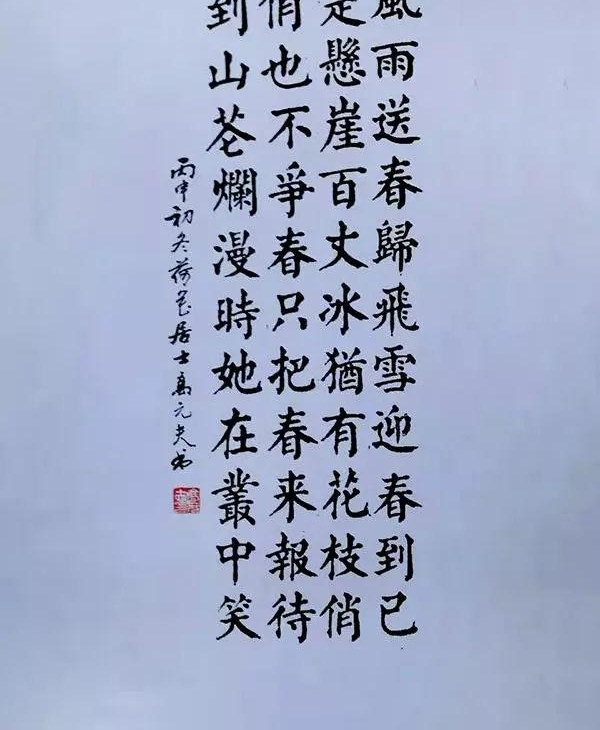 風雨送春歸飛雪迎春到已
是懸崖百丈冰猶有花枝俏
俏也不爭春只把春来報待
到山花爛漫時她在叢中笑
丙申初冬荷居士高元夫书